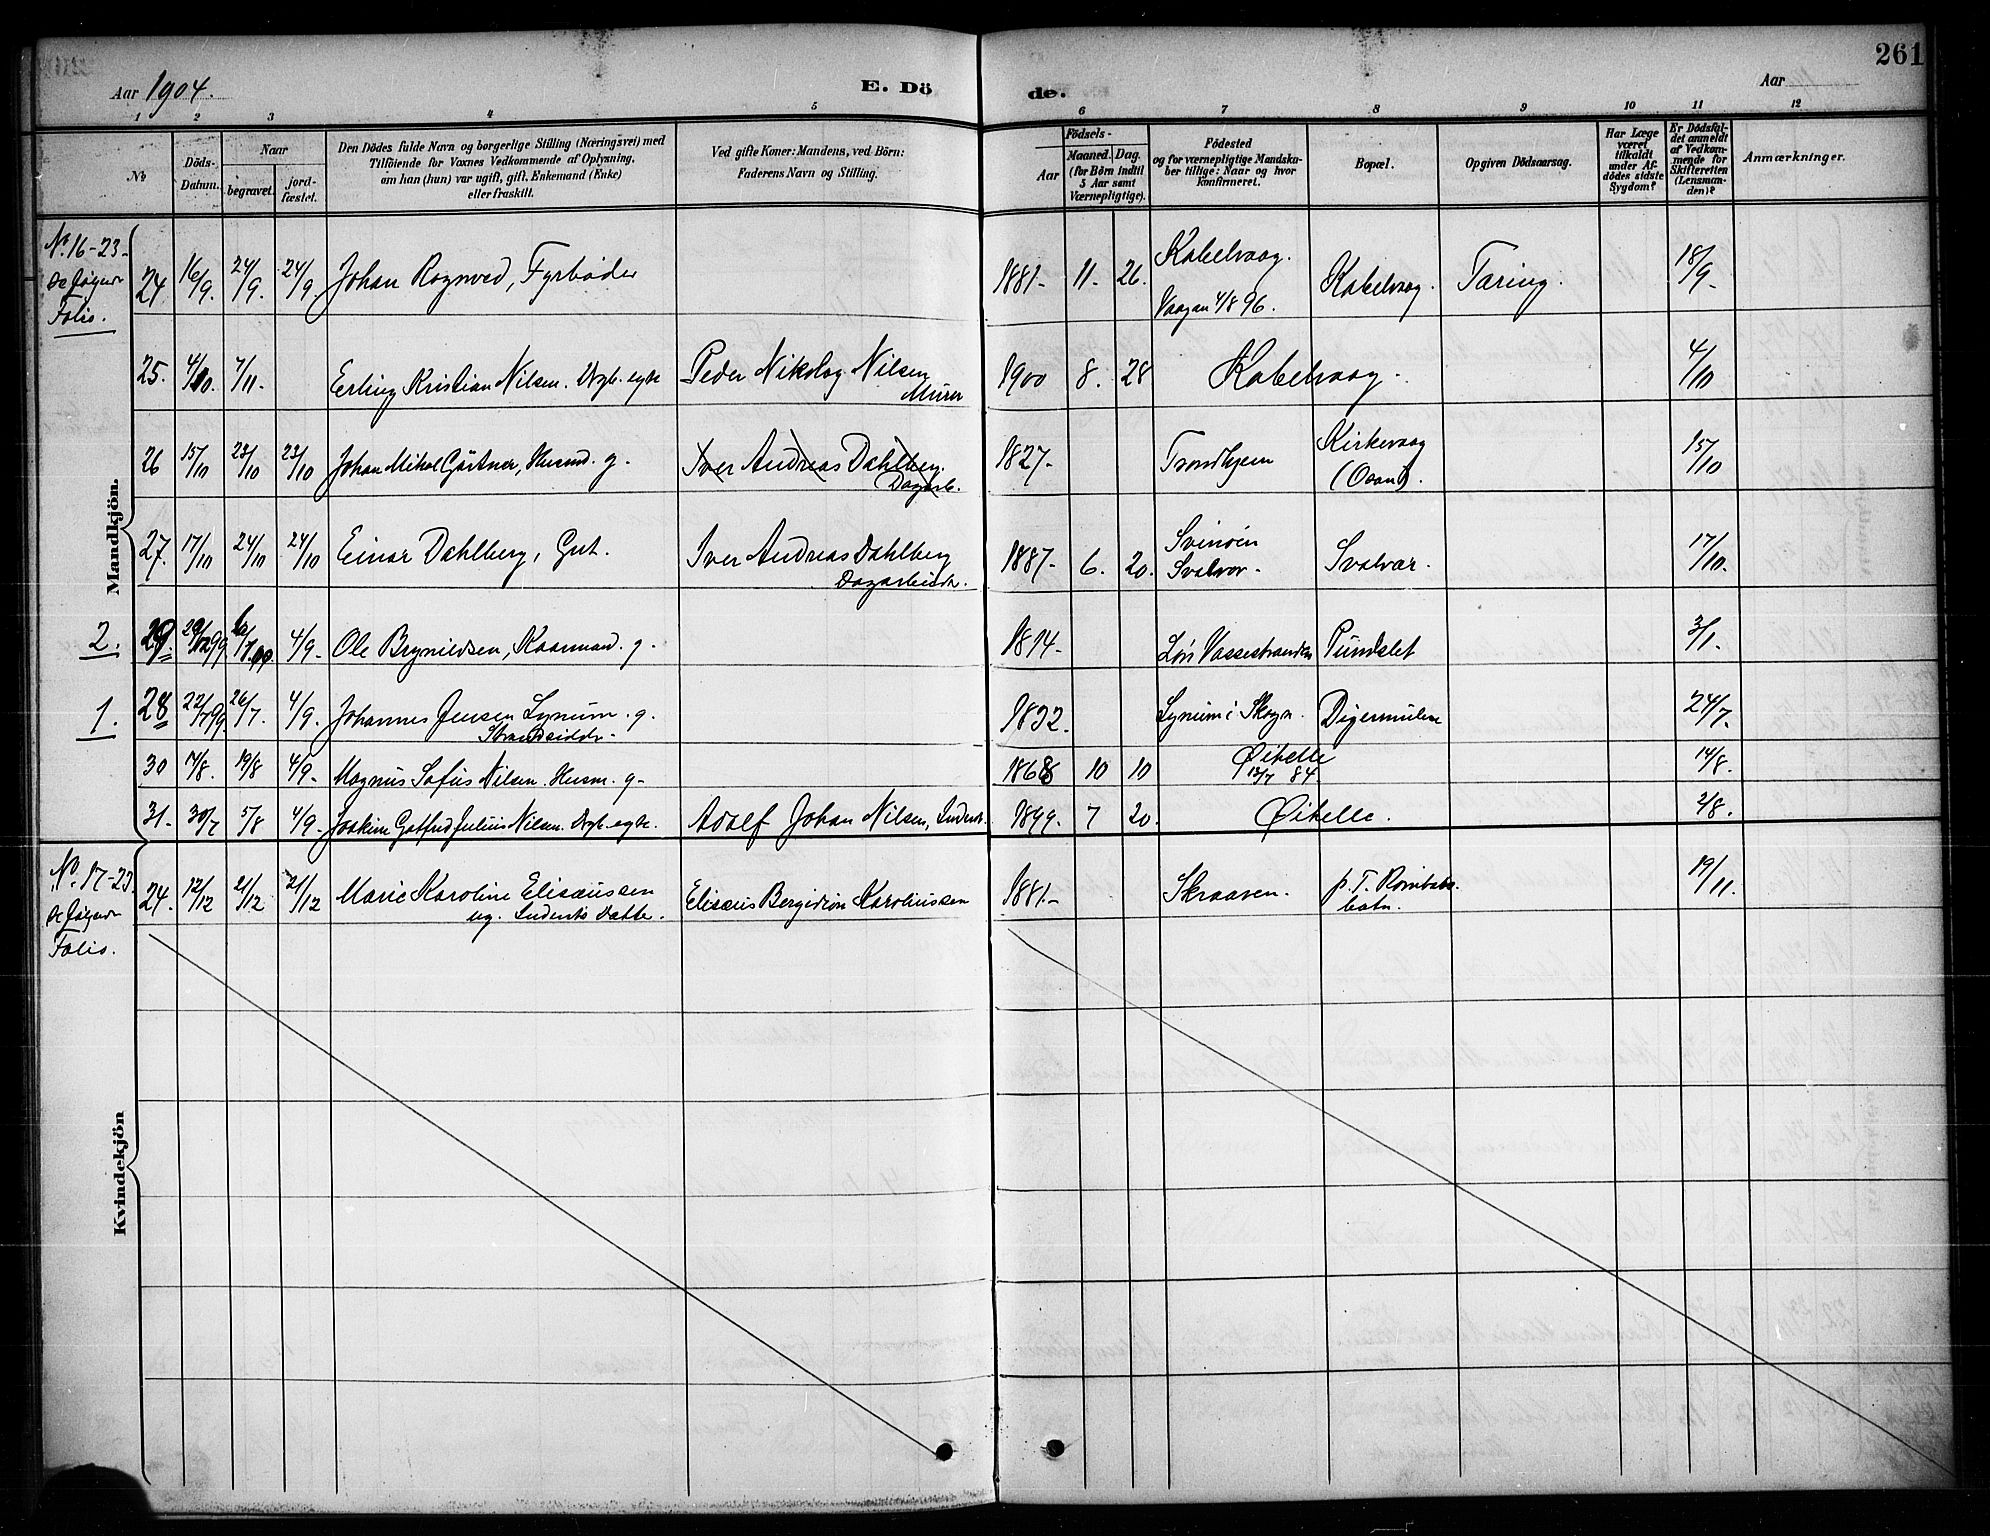 261
Aar 1904.
E. Dö
de.
Aar
1 2 3 4 5 6 7 8 9 10 11 12
No
Döds-
Datum.
Naar
begravet.
jord-
fæstet.
Den Dödes fulde Navn og borgerlige Stilling (Næringsvei) med
Tilföiende for Voxnes Vedkommende af Oplysning,
om han (hun) var ugift, gift, Enkemand (Enke)
eller fraskilt.
Ved gifte Koner: Mandens, ved Börn:
Faderens Navn og Stilling.
Födsels-
Aar
Maaned. Dag.
(for Börn indtil
5 Aar samt
Værnepligtige).
Födested
og for værnepligtige Mandska-
ber tillige: Naar og hvor
konfirmeret.
Bopæl.
Opgiven Dödsaarsag.
Har Læge
været
tilkaldt
under Af-
dödes sidste
Sygdom?
Er Dödsfal-
det anmeldt
af Vedkom-
mende for
Skifteretten
(Lensman-
den)?
Anmærkninger.
Mandkjön.
No. 16-23
Folio.
24 16/9. 24/9. 24/9. Johan Rognved, Fyrbøder 1881- 11. 26. Kabelvaag. Vaagan 4/8 96. Kabelvaag. Tæring. 18/9-
25. 4/10. 7/11. Erling Kristian Nilsen. Peder Nikolay Nilsen Murer 1900 8. 28 Kabelvaag. 4/10
26 15/10 23/10 23/10 Johan Mikal Gärtner, Husmd. g. Iver Andreas Dahlberg. Dagarb. 1827- Trondhjem Kirkevaag 15/10
27. 17/10 24/10 24/10 Einar Dahlberg, Gut. Iver Andreas Dahlberg Dagarbeider. 1887- 6. 20. Svinøen Svolvær. Svolvær. 17/10.
2. 29. 4/9- Ole Brynildsen, Kaarmand. g. 1814- Pundslet 3/1.
1. 28 26/7. 4/9. Johannes Jensen Lynum. g. Strandsidder. 1832. Lynum i Skogn. Digermulen 24/7.
30 14/8. 19/8 4/9- Magnus Sofus Nilsen. Husm. g- 1868 10 10 Øihelle 13/7 84 14/8.
31. 30/7 5/8 4/9- Joakim Gotfred Julius Nilsen. Adolf Johan Nilsen, Inderst. 1899. 7 20. Øihelle. 2/8.
Kvindekjön
No. 17-23.
Folio.
24. 12/12 21/12 21/12 Marie Karoline Elisæussen ug. Indersts Datter. Elisæus Bergiton Karoliussen 1881.- Skraaven. p. T. Rombaks- botn. 19/11.